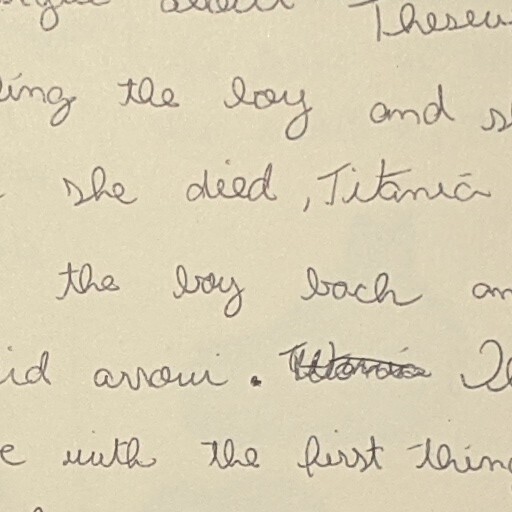 Theseu
ling the boy and s
she died, Titania
the boy back an
id arrow.
e with the first thing